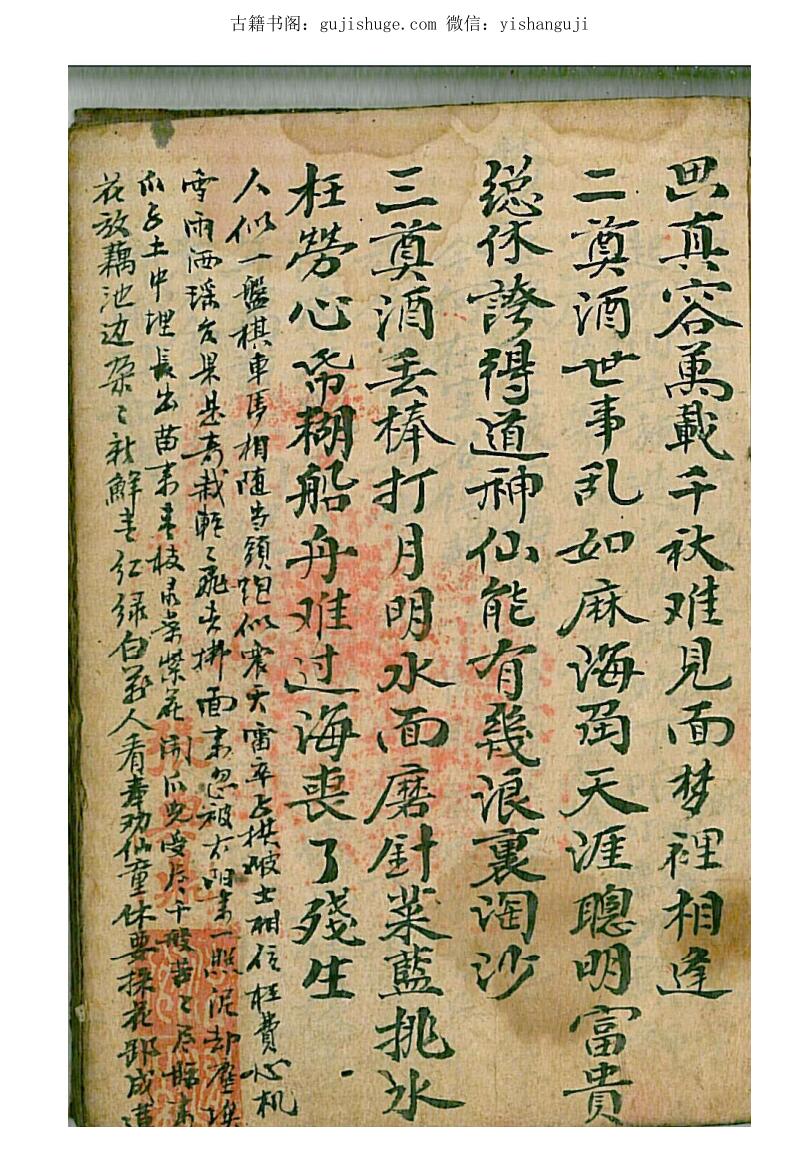 古籍书阁：gujishuge.com 微信：yishanguji
真容萬載千秋难見面梦裡相逢
二奠酒世事乱如麻海角天涯聰明富貴
総休誇得道神仙能有幾浪裏淘沙
三奠酒丢棒打月明水面磨針菜藍挑水
枉勞心帋糊船舟难过海喪了殘生
人似一盤棋車馬相随当頭炮似震天雷卒士相信枉費心机
雪雨洒瑶台果是奇栽輕〻飛去拂面来忽被太阳来一照泥却塵埃
瓜子土中埋長出苗来枝紫花開瓜兒受尽千般苦〻尽甜来
花放藕池边朵〻新鮮青红绿白萬人看奉劝仙童休要採花郎成道